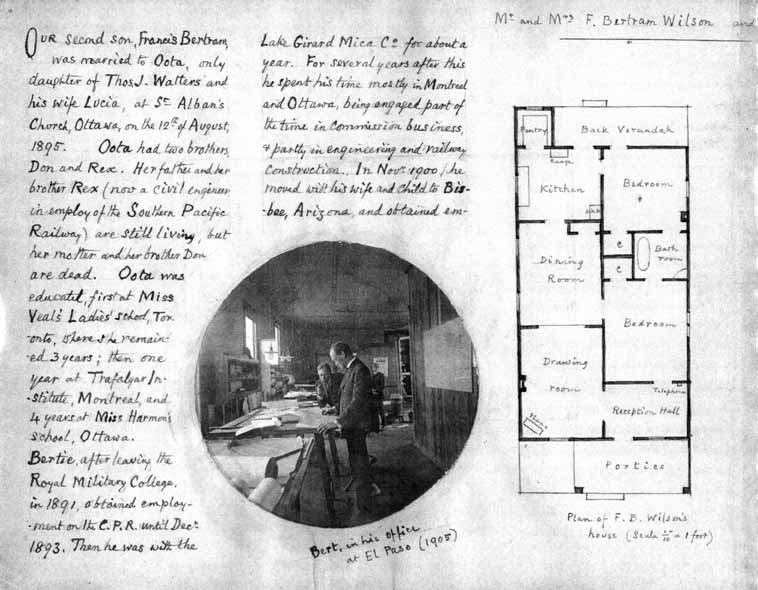 Mr. and Mrs. F. Bertram Wilson and
OUR second son, Francis Bertram,
was married to Oota, only
daughter of Thos. J. Watters and
his wife Lucia, at St. Alban's
Church, Ottawa, on the 12th of August,
1895. Oota had two brothers,
Don and Rex. Her father and her
brother Rex (now a civil engineer
in employ of the Southern Pacific
Railway) are still living, but
her mother and her brother Don
are dead. Oota was
educated, first at Miss
Veal's Ladies' school, Tor-
onto, where she remain-
ed 3 years; then one
year at Trafalgar In-
-stitute, Montreal, and
4 years at Miss Harmon's
school, Ottawa.
Bertie, after leaving the
Royal Military College,
in 1891, obtained employ-
-ment on the C.P.R. until Decr.
1893. Then he was with the
Lake Girard Mica Co. for about a
year. For several years after this
he spent his time mostly in Montreal
and Ottawa, being engaged part of
the time in Commission business,
& partly in engineering and railway
construction. In Novr. 1900, he
moved with his wife and child to Bis-
-bee, Arizona, and obtained em-
Bert. in his office
at El Paso (1905)
Pantry
Back Verandah
Range
Kitchen
Bedroom
Sink
C
Bath
room
C
Dining
Room
Bedroom
Drawing
room
Telephone
Reception Hall
Piano
Portico
Plan of F. B. Wilson's
house (Scale 1/10" = 1 foot)